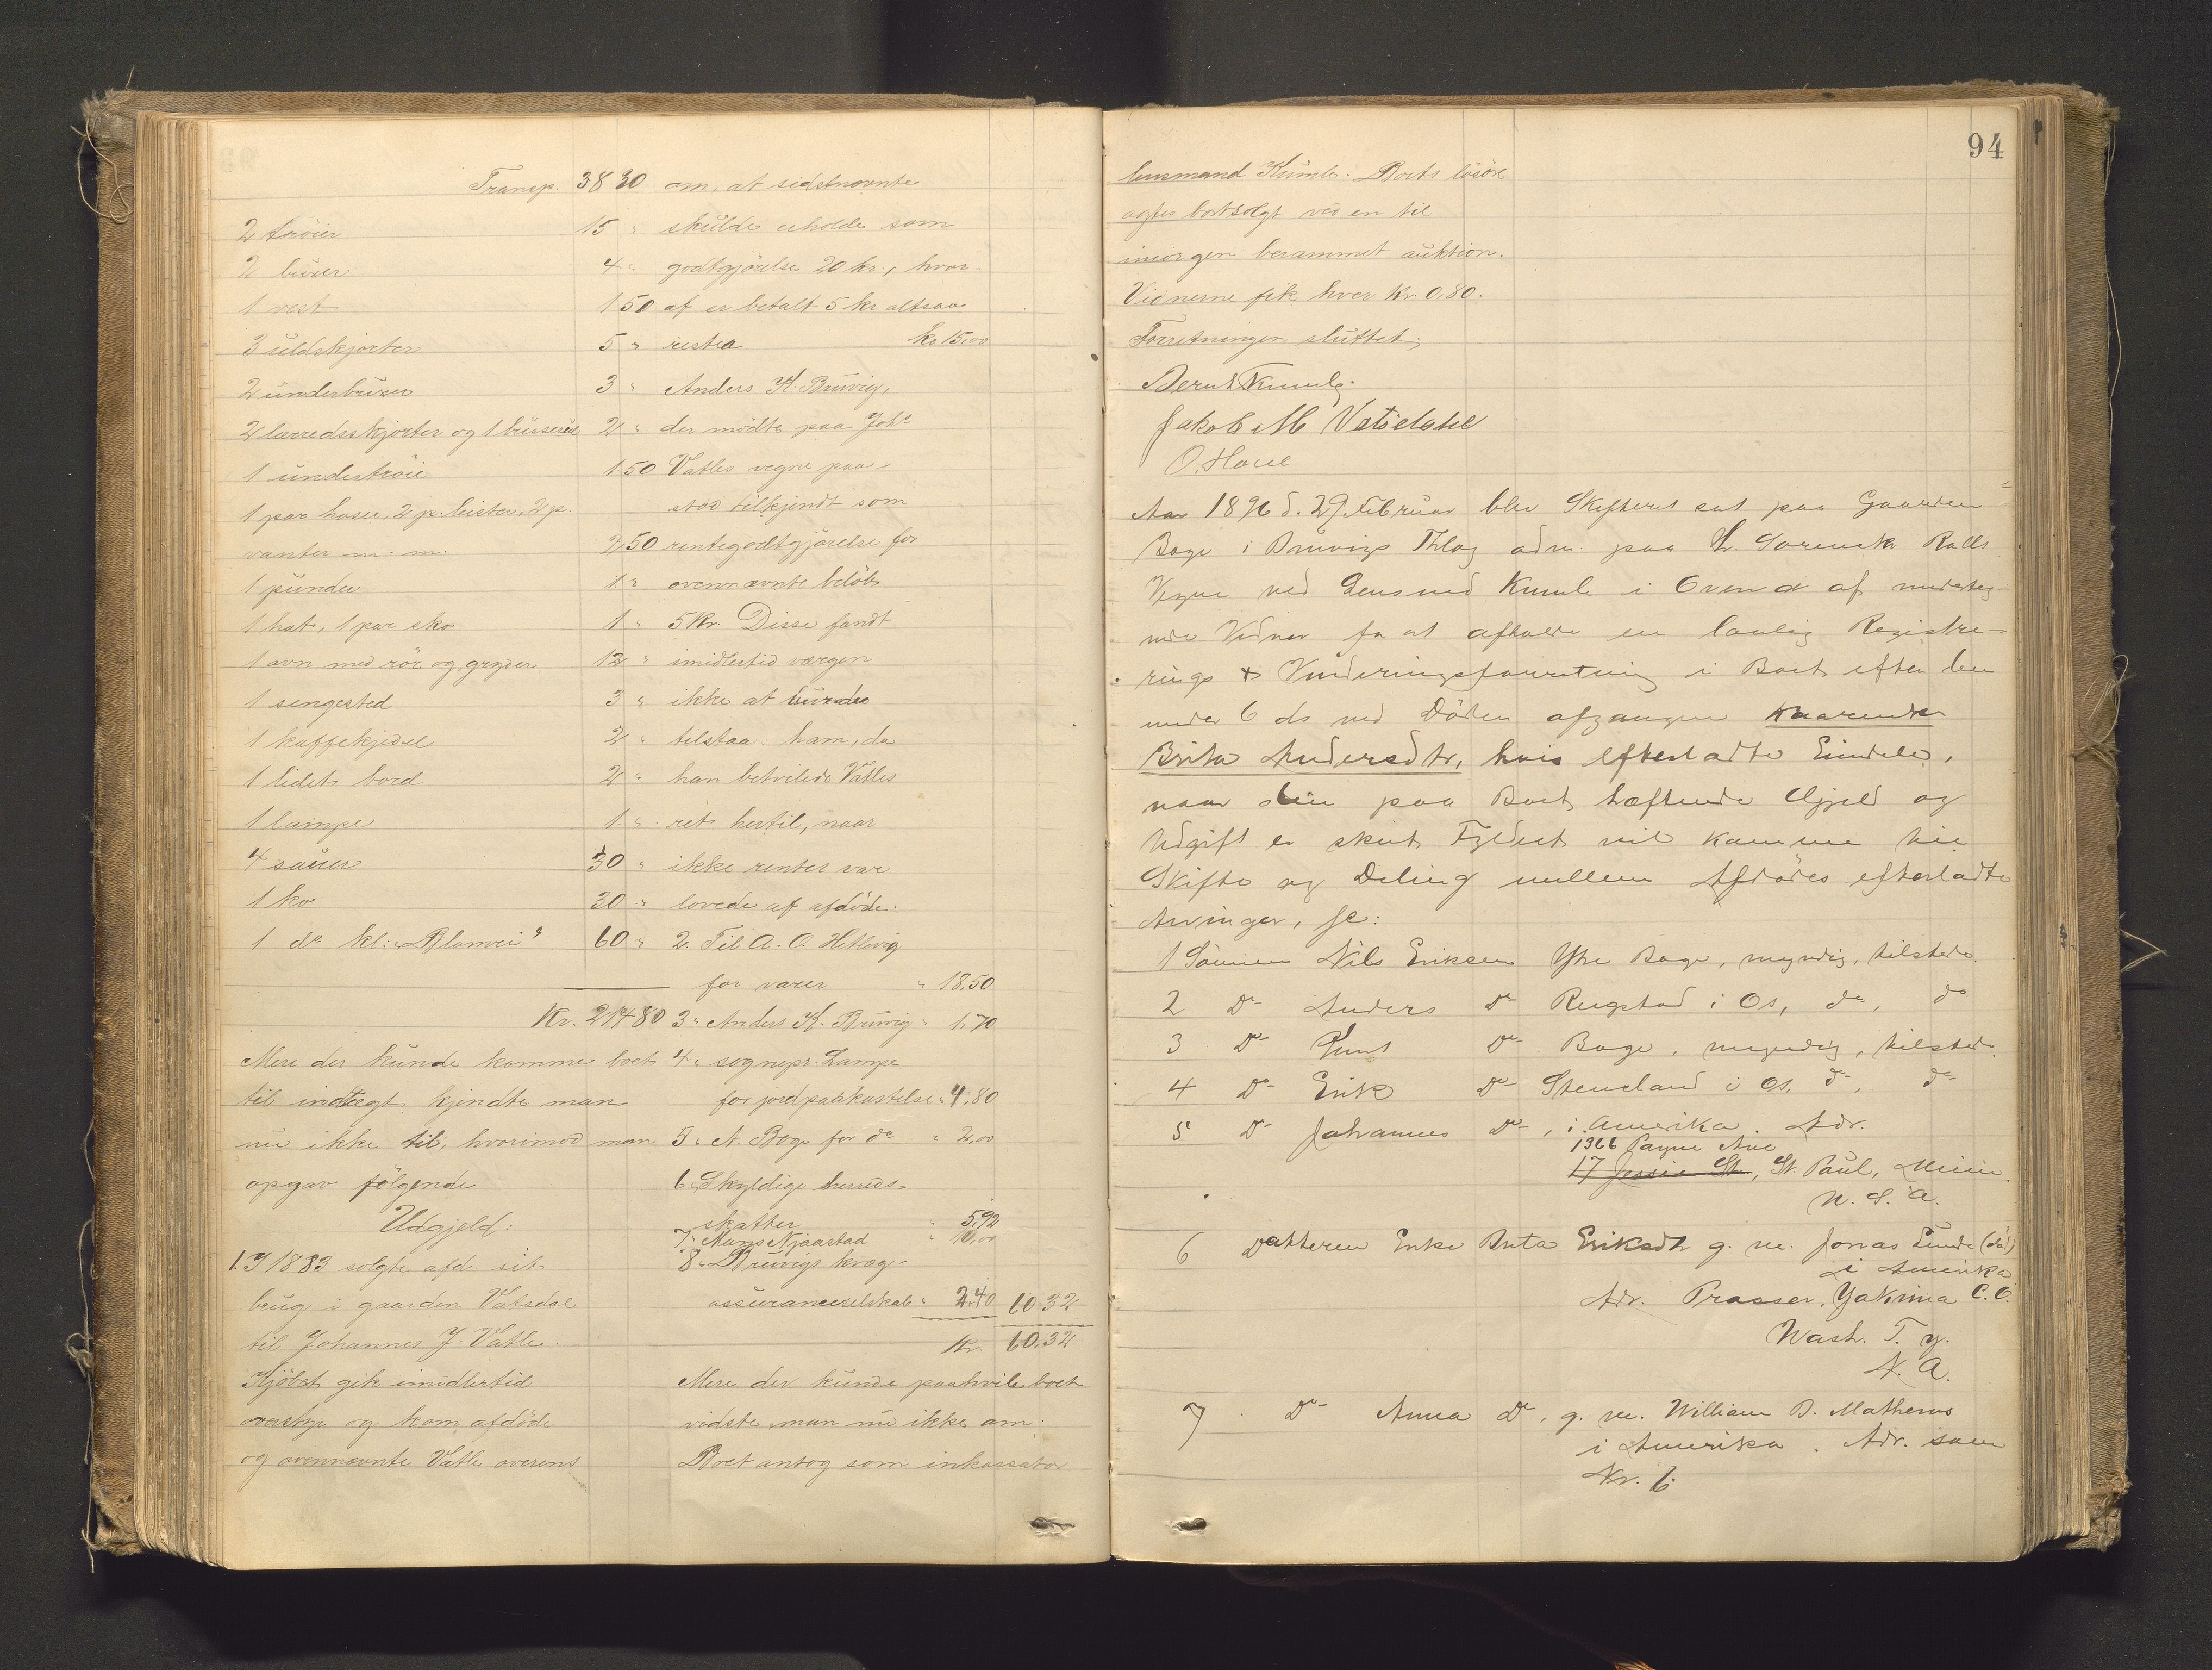 Transp. 38 30
2 tröier 15 "
2 buxer 4 "
1 vest 1 50
3 uldskjorter 5 "
2 underbuxer 3 "
2 lærredsskjorter og 1 2 "
1 undertröie 1 50
1 par hoser, 2 p. leister, 2 p.
vanter m. m. 2 50
1 punder 1 "
1 hat, 1 par sko 1 "
1 ovn med rör og gryder 12 "
1 sengested 3 "
1 kaffekjedel 2 "
1 lidet bord 2 "
1 lampe 1 "
4 sauer 30 "
1 ko 30 "
1 do kl: "Blomrei" 60 "
Kr. 214 80
Mere der kunde komme boet
til indtægt kjendte man
nu ikke til, hvorimod man
opgav følgende
Udgjeld:
1. I 1883 solgte afd. sit
brug i gaarden Vatsdal
til Johannes J. Vatle.
Kjöbet gik imidlertid
overstyr og kom afdöde
og ovennævnte Vatle overens
om, at sidstnævnte
skulde erholde som
godtgjörelse 20 kr., hvor-
af er betalt 5 kr altsaa
restea kr 15,00
Anders K. Bruvig,
der mödte paa Johs
Vatles vegne paa-
stod tilkjendt som
rentegodtgjörelse for
ovennævnte belöb
5 Kr. Disse fandt
imidlertid værgen
ikke at burde
tilstaa ham, da
han betvilede Vatles
ret hertil, naar
ikke renter var
lovede af afdöde.
2. Til A. O. Hetlevig
for varer " 18,50
3 " Anders K. Bruvig " 1,70
4 " sognepr. Lampe
for jordpaakastelse " 4,80
5 " N. Boge for do " 2,00
6 " Skyldige herreds-
skatter " 5,92
7 " Mons Njaastad " 10,00
8 " Bruvigs kreg-
assuranceselskab " 2,40 60 32
Kr. 60,32
Mere der kunde paahvile boet
vidste man nu ikke om.
Boet antog som inkassator
94
lensmand Kumle. Boets lösöre
agtes bortsolgt ved en til
imorgen berammet auktion.
Vidnerne fik hver Kr. 0,80.
Forretningen sluttet;
Bernt Kumle.
Jakob M Vatsdahl
O. Houe
Aar 1896 d. 29 Februar blev Skifteret sat paa Gaarden
Boge i Bruvigs Thlag adm. paa Hr. Sorenskr Rolls
Vegne ved Lensmd Kumle i Overvær af underteg-
nede Vidner for at afholde en lovlig Registre-
rings & Vurderingsforretning i Boet efter den
under 6 ds ved Döden afgangne Kaarenke
Brita Andersdtr, hvis efterladte Eiendele,
naar den paa Boet hæftende Gjæld og
Udgift er skeet Fyldest vil komme til
Skifte og Deling mellem Afdödes efterladte
Arvinger, se:
1 Sönnen Nils Eriksen Ytre Boge, myndig, tilstede.
2 Do Anders Do Rugstad i Os, do, do
3 Do Knut Do Boge, myndig, tilstede.
4 Do Erik Do Steneland i Os, do, do
5 Do Johannes Do, i Amerika. Adr.
1366 Payne Ave
17 Jessie St., St. Paul, Minn.
N. S. A.
6 Datteren Enke Brita Eriksdtr g. m. Jonas Lunde (död)
i Amerika
Adr. Prosser, Yakima C.O.
Wash. T. y.
N. A.
7 Do Anna do, g. m. William D. Mathews
i Amerika. Adr. som
Nr. 6.